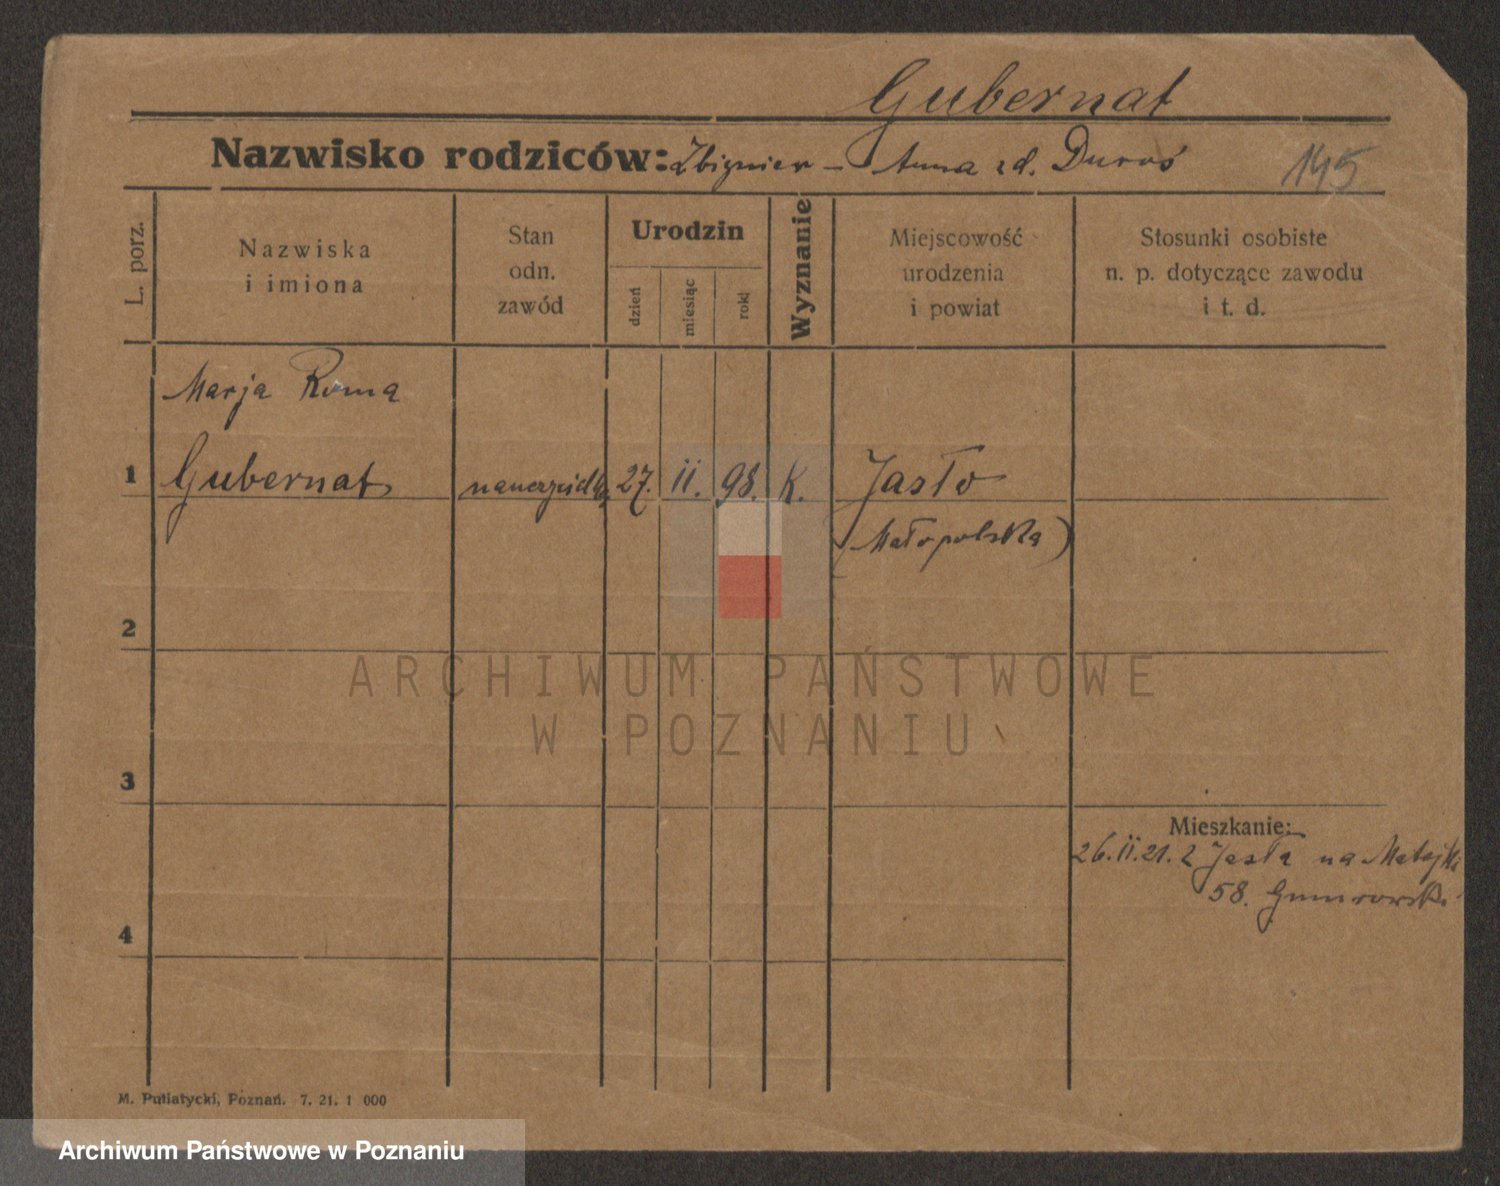 Gubernat
Nazwisko rodziców: Zbigniew – Anna zd. Duroś
145
L. porz.
Nazwiska
i imiona
Stan
odn.
zawód
Urodzin
dzień
miesiąc
rok
Wyznanie
Miejscowość
urodzenia
i powiat
Stosunki osobiste
n. p. dotyczące zawodu
i t. d.
Marja Roma
1 Gubernat nauczycielka 27. II. 98. K. Jasło
(Małopolska)
2
ARCHIWUM PAŃSTWOWE
W POZNANIU
3
Mieszkanie:
26.II.21. z Jasła na Matejki
58.
4
M. Putiatycki, Poznań. 7. 21. 1 000
Archiwum Państwowe w Poznaniu